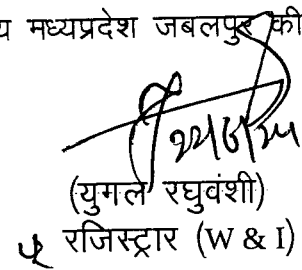 मध्यप्रदेश जबलपुर की
(युगल रघुवंशी)
रजिस्ट्रार (W & I)